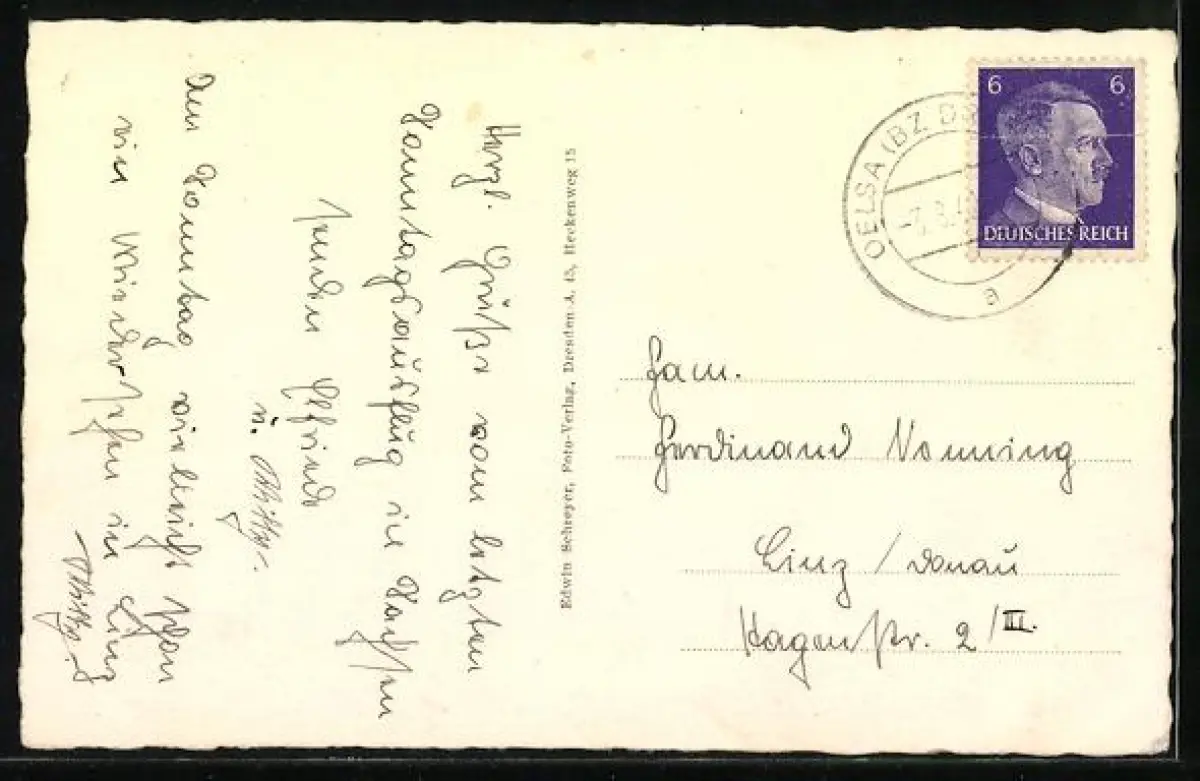 Herzl. Grüße vom letzten
Sonntagsausflug in Sachsen
senden Elfriede
u. Mitzi.
Am Sonntag vielleicht schon
ein Wiedersehen in Linz
Mitzi
Edwin Schreyer, Foto-Verlag, Dresden-A. 45, Heckenweg 15
6 6
DEUTSCHES REICH
OELSA (BZ. D
-7.8.4
a
Fam.
Ferdinand Nonning
Linz / Donau
Hagenstr. 2/III.